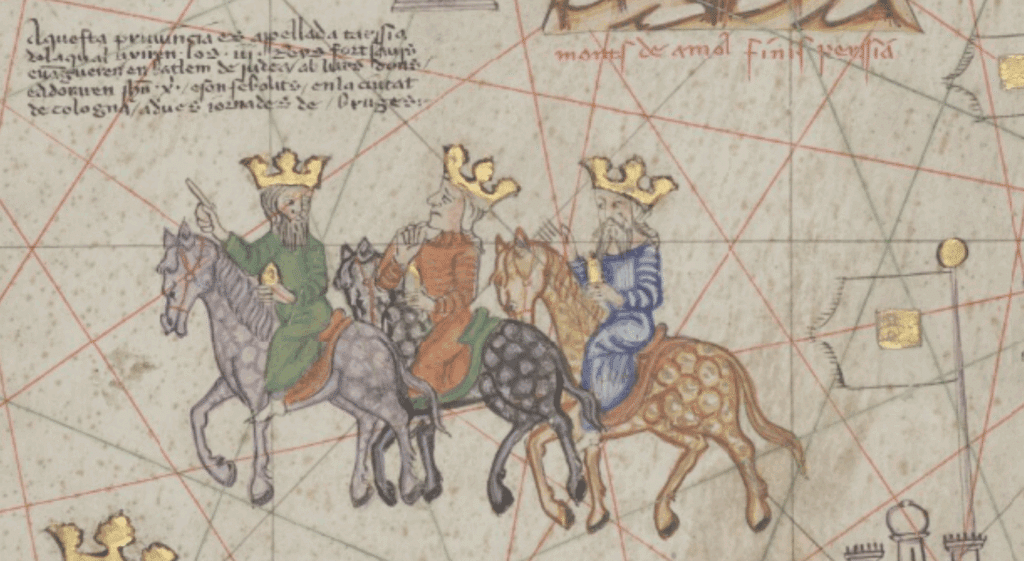 Aquesta prouincia es apellada tarssia
delaqual axiren los .iii. Reys fort sauis
euengueren en batlem de judea / ab lurs dons /
Eadoraren .x. / eson sebolits / en la ciutat
de cologna / adues iornades de Bruges :
monts de amol finis perssia